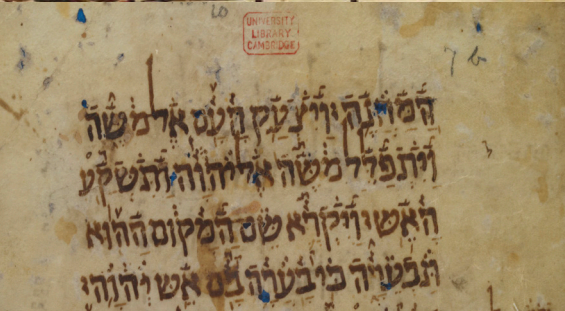 UNIVERSITY
LIBRARY
CAMBRIDGE
7 b
המחנה ויצעק העם אל משה
ויתפלל משה אל יהוה ותשקע
3
האש ויקרא שם המקום ההוא
תבערה כי בערה בם אש יהוה